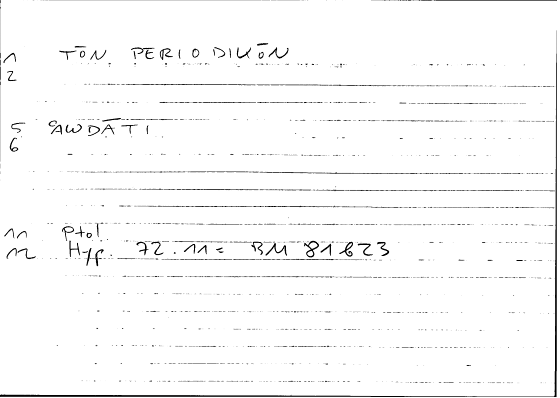 1 TŌN PERIODIKŌN
2
5 ʿAWDĀTI
6
11 Ptol
12 Hyp. 72.11 = BM 81623